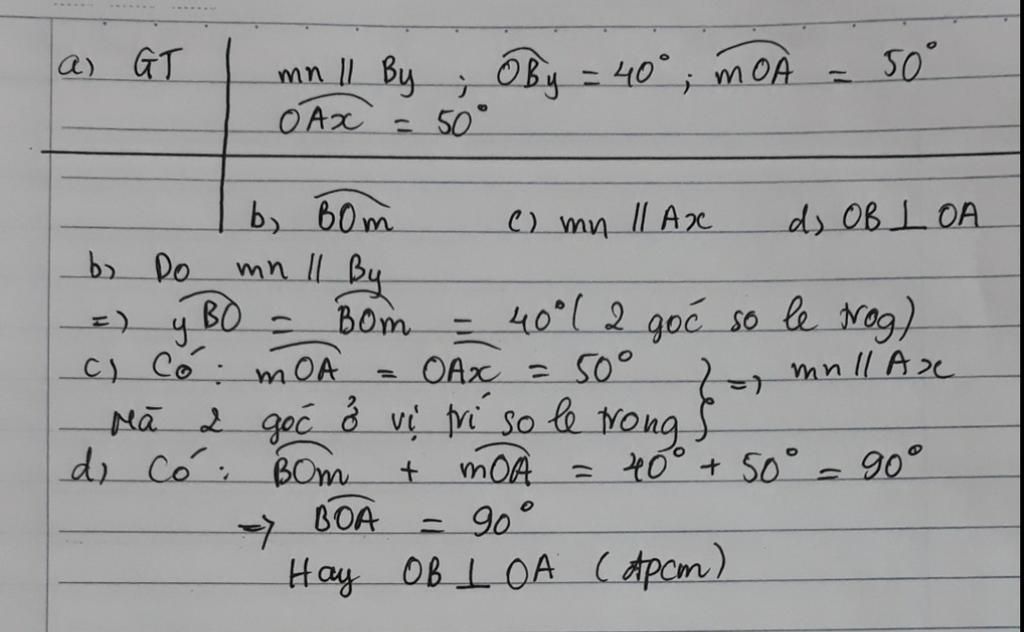 a) GT | mn // By ; OBy = 40° ; mOA = 50°
OAx = 50°
b, BOm c) mn // Ax d, OB ⊥ OA
b) Do mn // By
=) yBO = BOm = 40° ( 2 goć so le trog)
c) Có : mOA = OAx = 50° } =) mn // Ax
Mà 2 goć ở vị trí so le trong
d) Có : BOm + mOA = 40° + 50° = 90°
=> BOA = 90°
Hay OB ⊥ OA (đpcm)